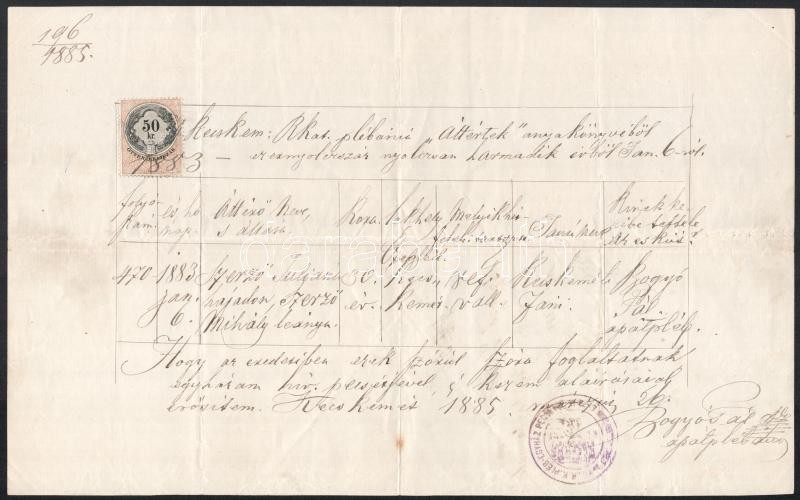 196
1885.
50
kr.
Kecskem: Rkat. plébánia „Áttértek" anyakönyvéből
1883 — ezernyolczszáz nyolczvan harmadik évből Jan. 6-ról.
folyó szám
év, hó nap.
Áttérő Neve, s állása.
Kora.
Lakhely
Melyik
Tanúk
Kinek kezeibe
470
1883 jan. 6.
Szerző Julianna hajadon, Szerző Mihály leánya.
30. év.
Kecskemét
ref. vall.
Kecskeméti Jáni.
Bogyó Pál apátpléb.
Hogy az eredetiben ezek szórúl szóra foglaltatnak
egyházam hiv. pecsétjével, s kezem aláirásával
erősitem. Kecskemét 1885. 26.
Bogyó Pál
apátplébános